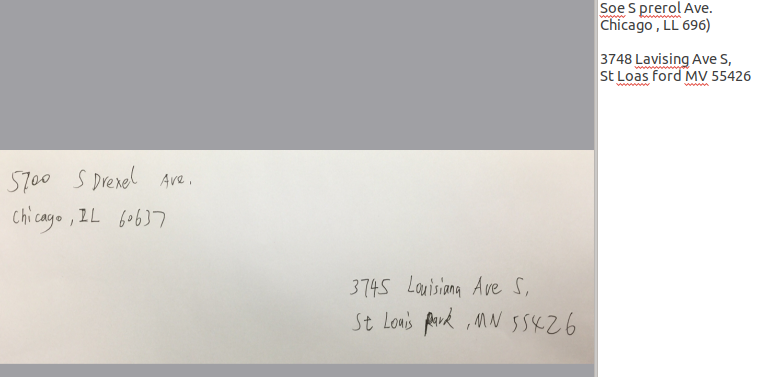 5700 S Drexel Ave.
Chicago, IL 60637
3745 Louisiana Ave S,
St Louis Park, MN 55426
Soe S prerol Ave.
Chicago , LL 696)
3748 Lavising Ave S,
St Loas ford MV 55426